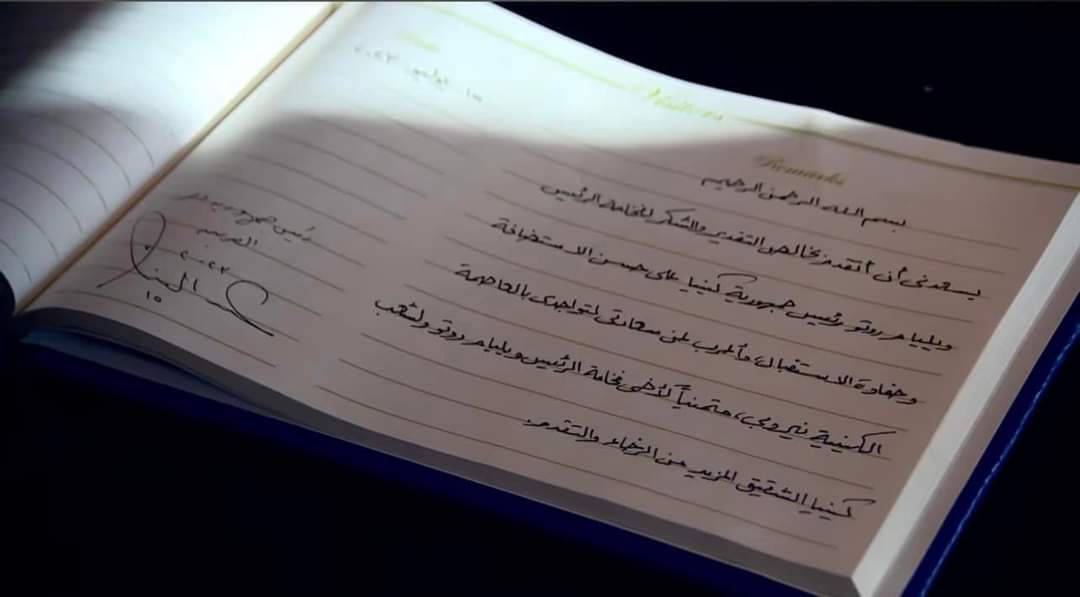 ١٥ يوليو ٢٠٢٣
Remarks
بسم الله الرحمن الرحيم
يسعدني أن أتقدم بخالص التقدير والشكر لفخامة الرئيس
ويليام روتو رئيس جمهورية كينيا على حسن الاستضافة
وحفاوة الاستقبال، وأعرب عن سعادتي لتواجدي بالعاصمة
الكينية نيروبي، متمنياً لأخي فخامة الرئيس ويليام روتو ولشعب
كينيا الشقيق المزيد من الرخاء والتقدم.
رئيس جمهورية
العربية
٢٠٢٣
١٥